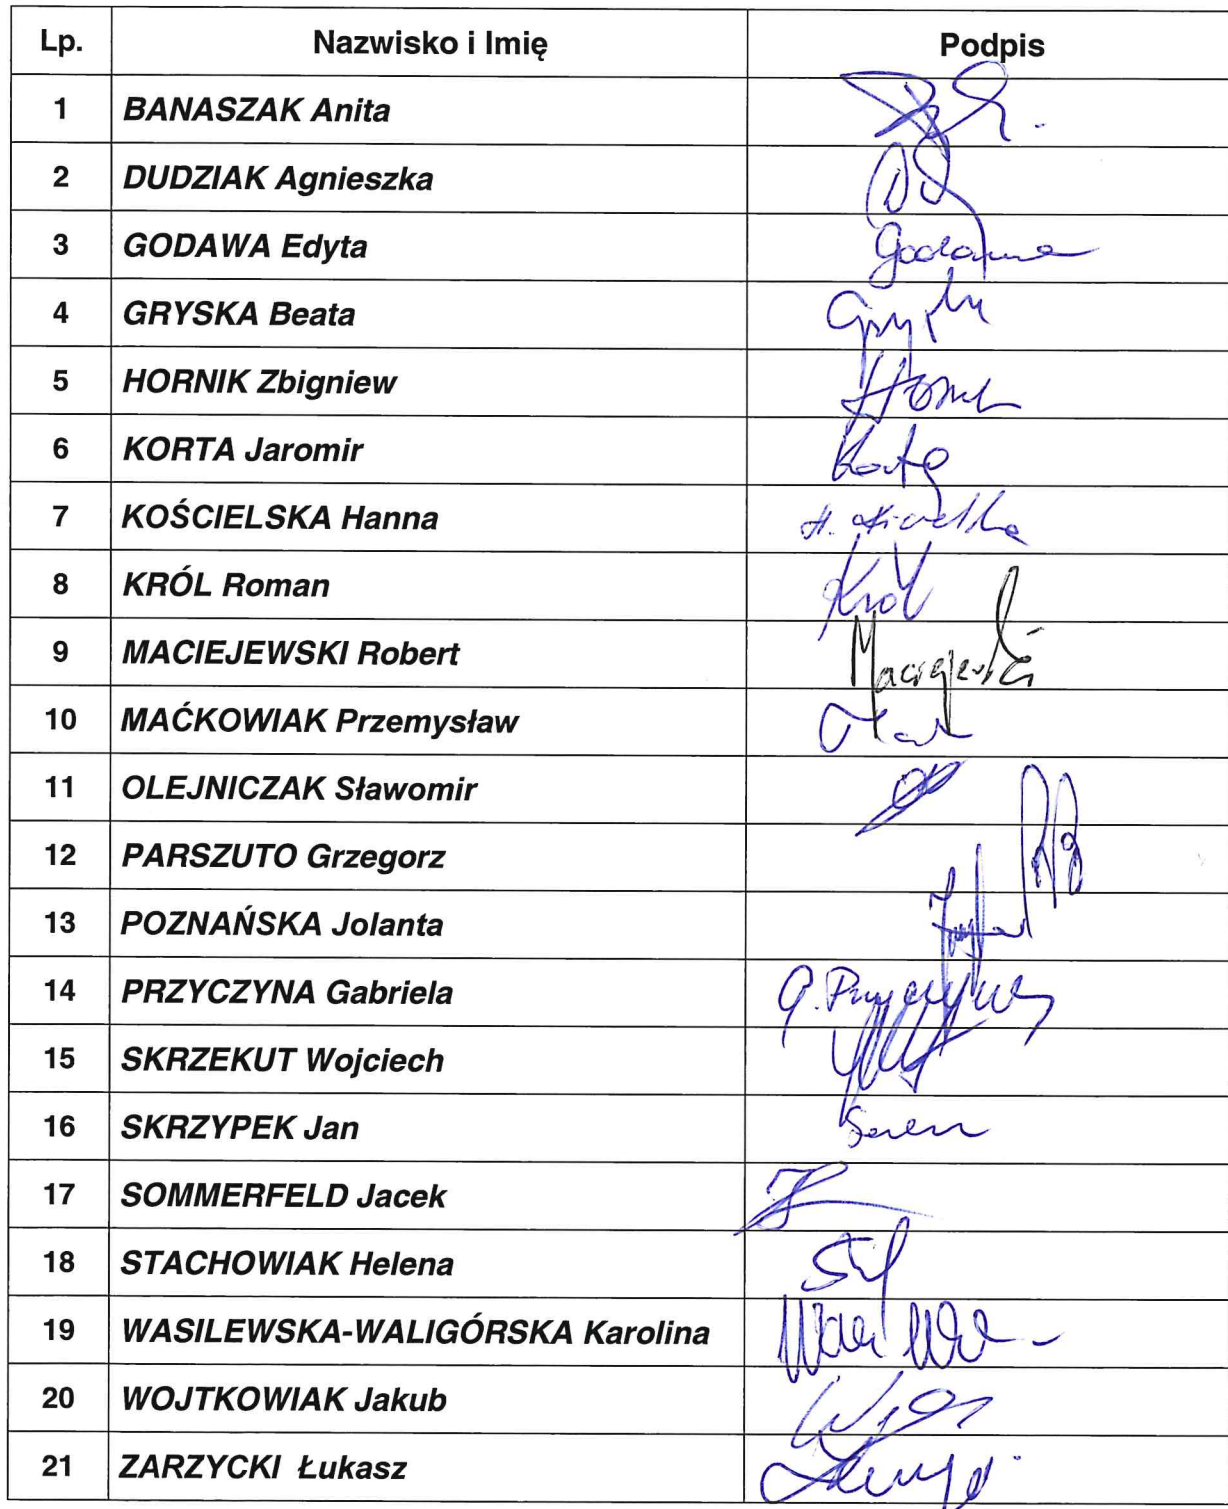 Lp. Nazwisko i Imię Podpis
1 BANASZAK Anita
2 DUDZIAK Agnieszka
3 GODAWA Edyta Godawa
4 GRYSKA Beata
5 HORNIK Zbigniew
6 KORTA Jaromir Korta
7 KOŚCIELSKA Hanna
8 KRÓL Roman Król
9 MACIEJEWSKI Robert Maciejewski
10 MAĆKOWIAK Przemysław
11 OLEJNICZAK Sławomir
12 PARSZUTO Grzegorz
13 POZNAŃSKA Jolanta
14 PRZYCZYNA Gabriela G. Przyczyna
15 SKRZEKUT Wojciech
16 SKRZYPEK Jan
17 SOMMERFELD Jacek
18 STACHOWIAK Helena
19 WASILEWSKA-WALIGÓRSKA Karolina
20 WOJTKOWIAK Jakub
21 ZARZYCKI Łukasz